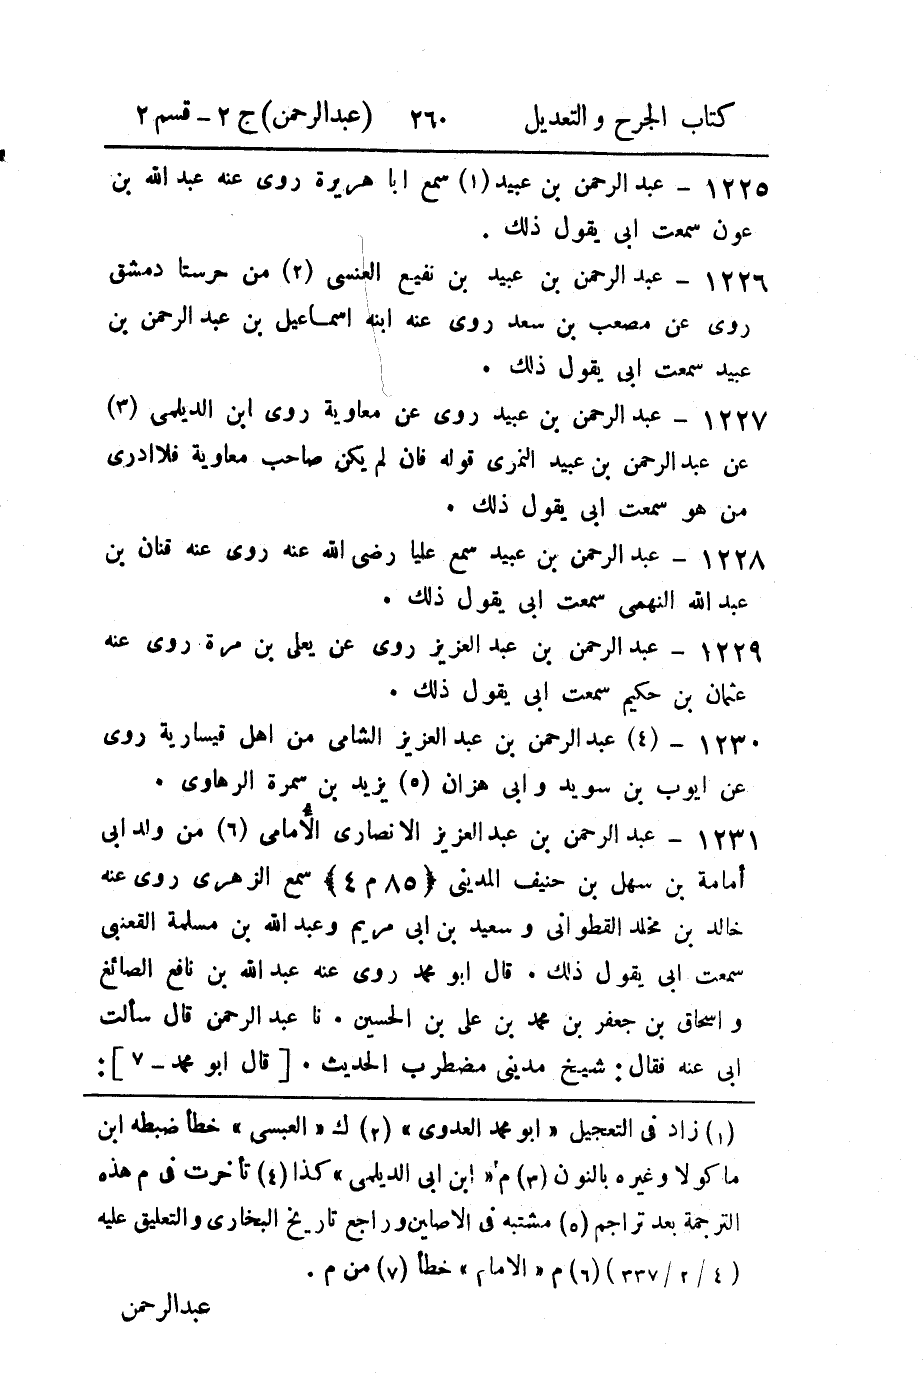 كتاب الجرح والتعديل ٢٦٠ (عبدالرحمن) ج ٢ - قسم ٢
١٢٢٥ - عبد الرحمن بن عبيد (١) سمع ابا هريرة روى عنه عبد الله بن
عون سمعت ابى يقول ذلك .
١٢٢٦ - عبد الرحمن بن عبيد بن نفيع العنسى (٢) من حرستا دمشق
روى عن مصعب بن سعد روى عنه ابنه اسماعيل بن عبد الرحمن بن
عبيد سمعت ابى يقول ذلك .
١٢٢٧ - عبد الرحمن بن عبيد روى عن معاوية روى ابن الديلمى (٣)
عن عبدالرحمن بن عبيد النمرى قوله فان لم يكن صاحب معاوية فلاادرى
من هو سمعت ابى يقول ذلك .
١٢٢٨ - عبد الرحمن بن عبيد سمع عليا رضى الله عنه روى عنه قنان بن
عبد الله النهمى سمعت ابى يقول ذلك .
١٢٢٩ - عبد الرحمن بن عبد العزيز روى عن يعلى بن مرة روى عنه
عثمان بن حكيم سمعت ابى يقول ذلك .
١٢٣٠ - (٤) عبدالرحمن بن عبد العزيز الشامى من اهل قيسارية روى
عن ايوب بن سويد وابى هزان (٥) يزيد بن سمرة الرهاوى .
١٢٣١ - عبد الرحمن بن عبدالعزيز الانصارى الأمامى (٦) من ولد ابى
أمامة بن سهل بن حنيف المدينى ﴿٨٥ م ٤﴾ سمع الزهرى روى عنه
خالد بن مخلد القطوانى وسعيد بن ابى مريم وعبد الله بن مسلمة القعنبى
سمعت ابى يقول ذلك . قال ابو محمد روى عنه عبد الله بن نافع الصائغ
واسحاق بن جعفر بن محمد بن على بن الحسين . نا عبد الرحمن قال سألت
ابى عنه فقال: شيخ مدينى مضطرب الحديث . [قال ابو محمد - ٧]:
(١) زاد فى التعجيل « ابو محمد العدوى » (٢) ك « العبسى » خطأ ضبطه ابن
ماكولا وغيره بالنون (٣) م « ابن ابى الديلمى » كذا (٤) تأخرت فى م هذه
الترجمة بعد تراجم (٥) مشتبه فى الاصلين وراجع تاريخ البخارى والتعليق عليه
(٤ / ٢ / ٣٣٧) (٦) م « الامام » خطأ (٧) من م .
عبدالرحمن